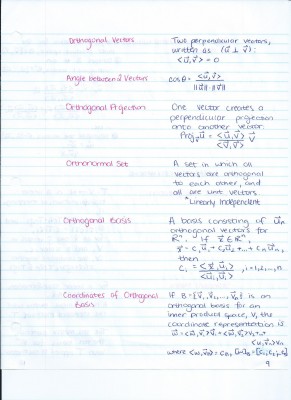 Orthogonal Vectors
Two perpendicular vectors,
written as (u⃗ ⊥ v⃗):
<u⃗, v⃗> = 0
Angle between 2 Vectors
cosθ = <u⃗, v⃗> / ||u⃗||·||v⃗||
Orthogonal Projection
One vector creates a
perpendicular projection
onto another vector.
Proj_v u⃗ = <u⃗, v⃗> / <v⃗, v⃗> v⃗
Orthonormal Set
A set in which all
vectors are orthogonal
to each other, and
all are unit vectors.
*Linearly Independent
Orthogonal Basis
A basis consisting of u⃗n
orthogonal vectors for
ℝⁿ. If x⃗ ∈ ℝⁿ,
x⃗ = c₁u⃗₁ + c₂u⃗₂ +...+ cₙu⃗ₙ,
then
cᵢ = <x⃗, u⃗ᵢ> / <u⃗ᵢ, u⃗ᵢ>, i=1,2,...,n
Coordinates of Orthogonal
Basis
If B = {v⃗₁, v⃗₂, ..., v⃗ₙ} is an
orthogonal basis for an
inner product space, V, the
coordinate representation is
w⃗ = <w⃗, v⃗₁>v⃗₁ + <w⃗, v⃗₂>v⃗₂ +...+
<w, vₙ>vₙ
where
9